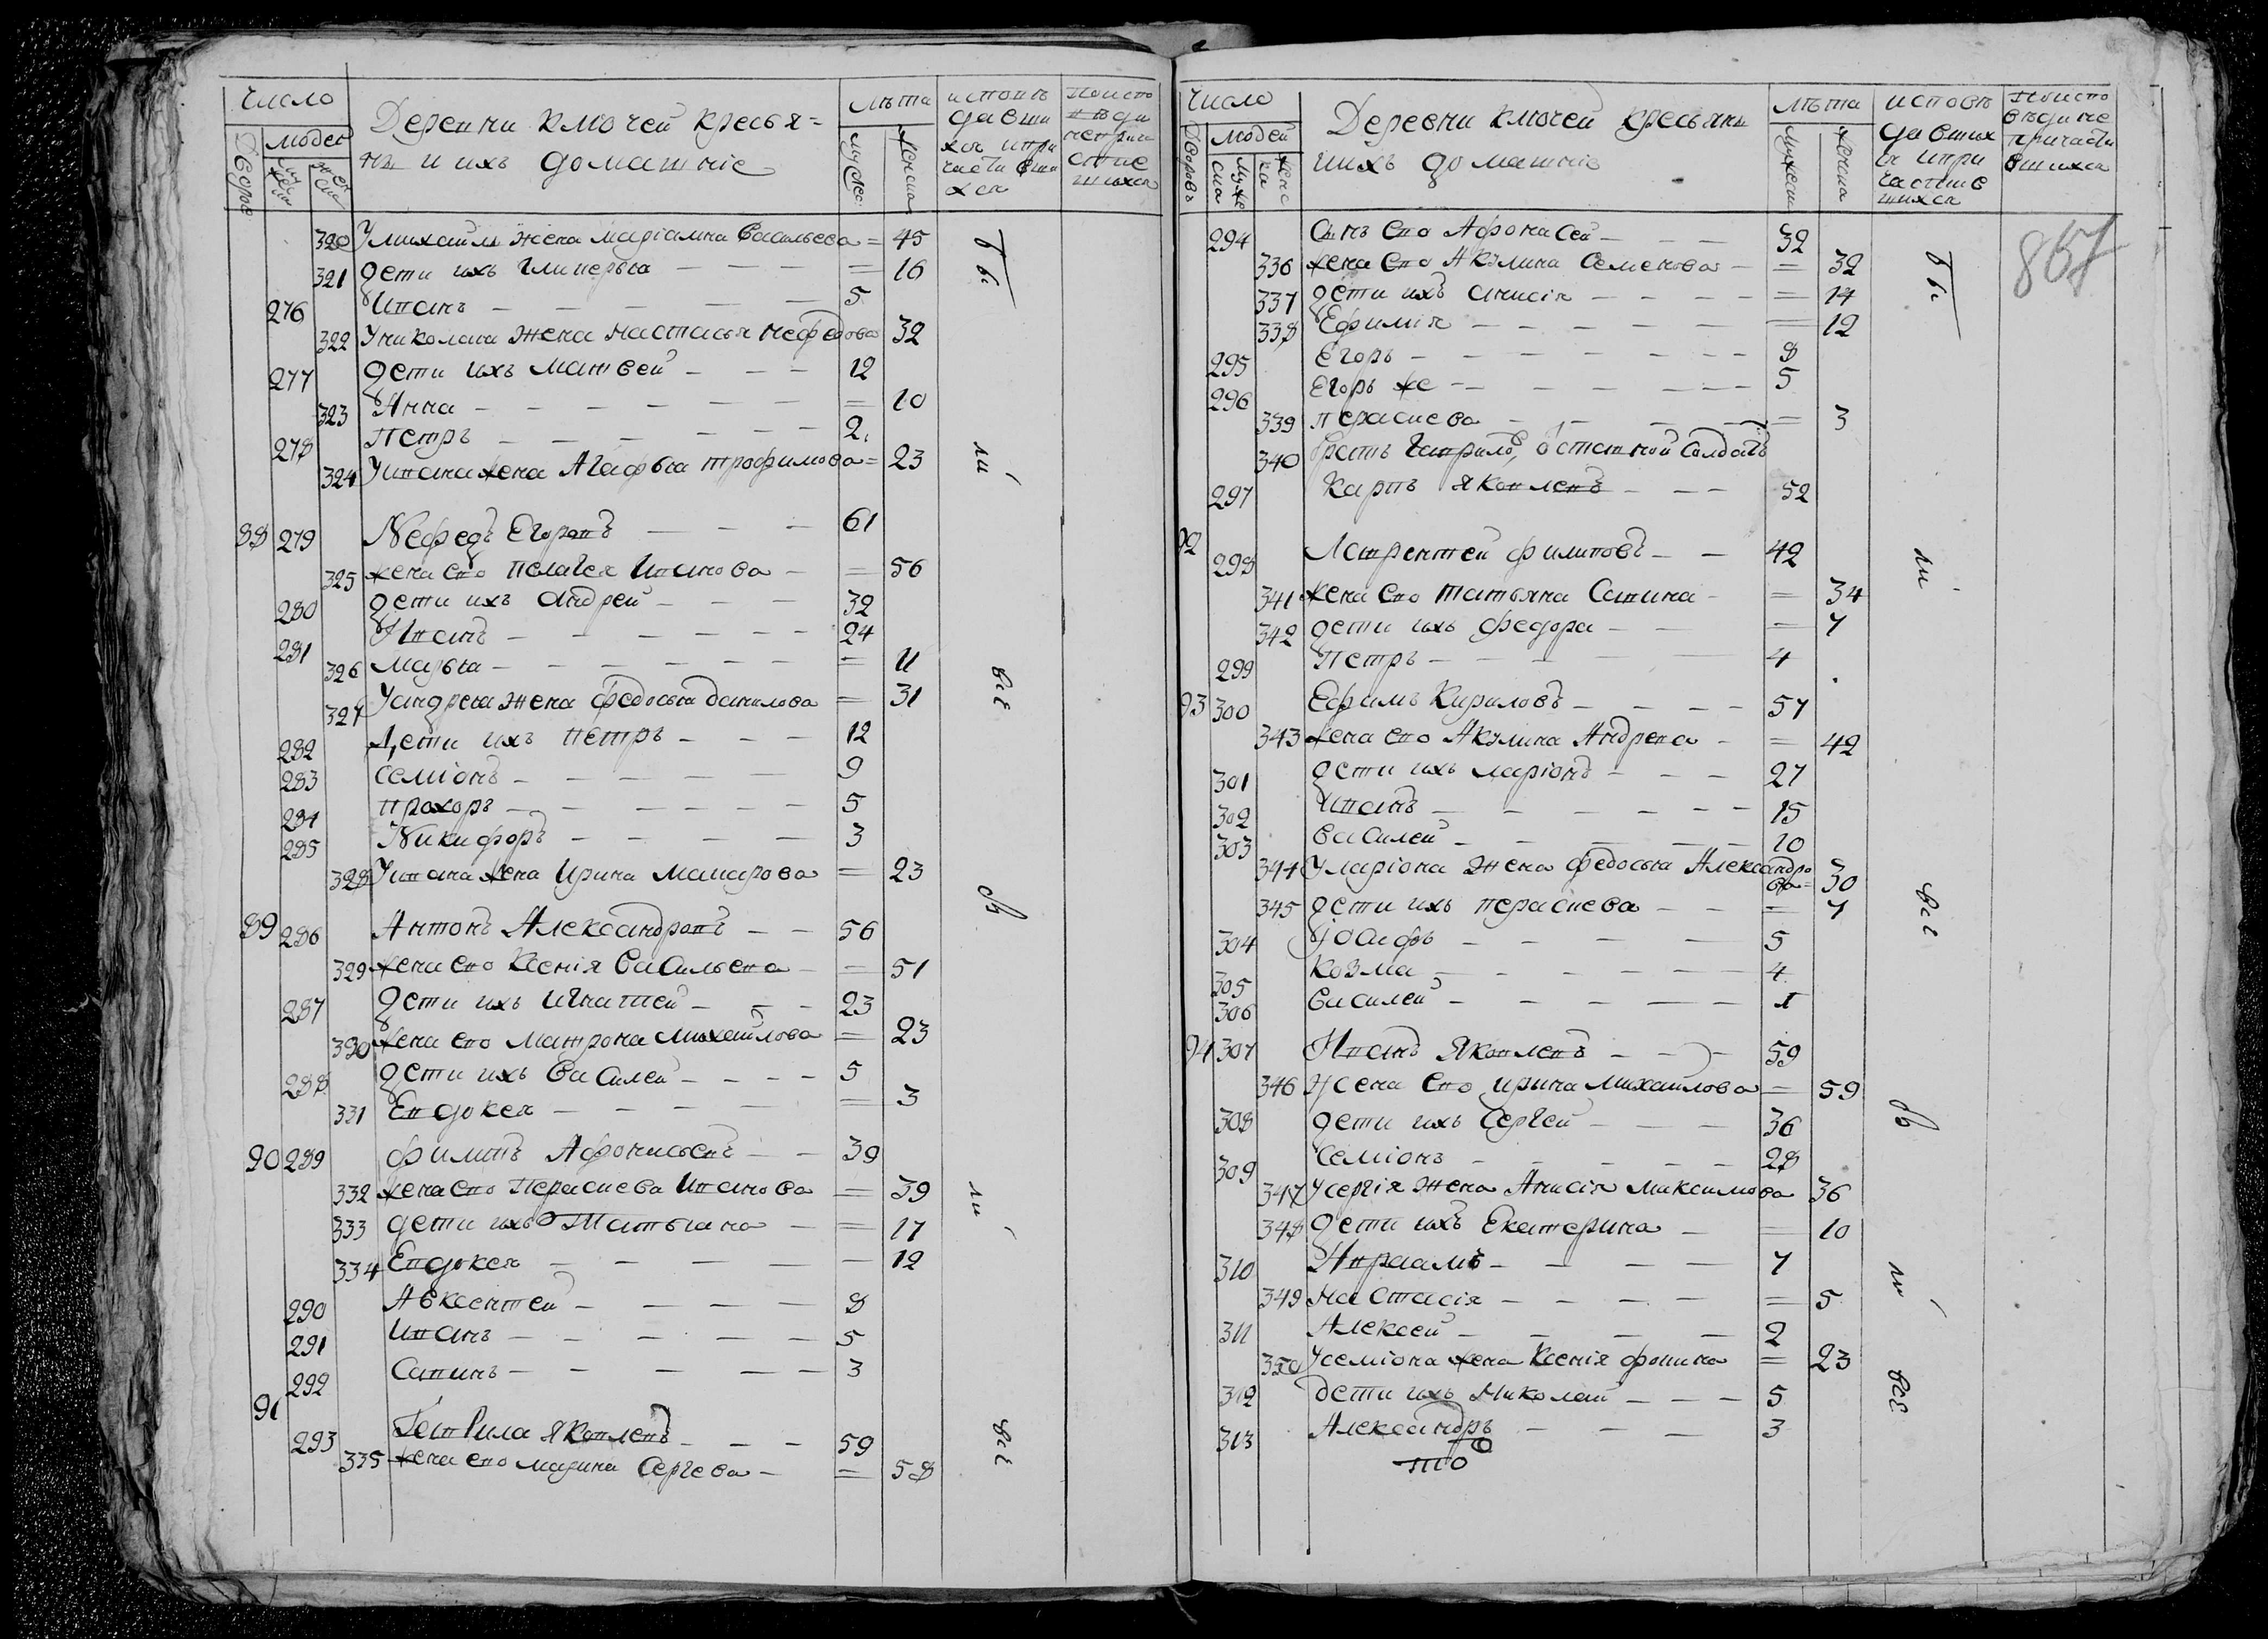 Число
Дворов
людей
мужеска
женска
Деревни Ключей кресья=
не и ихъ домашніе
лѣта
мужес:
женска
исповѣ
давши
хся и при
частивши
хся
по испо
вѣди
непри
частив
шихся
320 У михаила жена маріамна Васильева = 45
321 дети ихъ Гликерья — — — = 16
276 Иванъ — — — — 5
322 У николая жена настасья нефедова 32
277 дети ихъ матвей — — — 12
323 Анна — — — — — = 10
278 Петръ — — — — — 2
324 У ивана жена Агафья трофимова = 23
88 279 Нефедъ Егоровъ — — — 61
325 жена ево Пелагея Иванова — = 56
280 дети ихъ Андрей — — — 32
281 Иванъ — — — — — 24
326 марья — — — — — = 11
327 У андрея жена федосья данилова = 31
282 дети ихъ петръ — — — 12
283 семіонъ — — — — — 9
284 прохоръ — — — — — 5
285 Никифоръ — — — — 3
328 У ивана жена Ирина Макарова = 23
89 286 Антонъ Александровъ — — 56
329 жена ево Ксенія Васильева — = 51
287 дети ихъ Игнатей — — — 23
330 жена ево матрона михайлова = 23
288 дети ихъ Василей — — — — 5
331 Евдокея — — — — — = 3
90 289 филипъ Афонасьевъ — — 39
332 жена ево Параскева Иванова = 39
333 дети ихъ Татьяна — = 17
334 Евдокея — — — — — 12
290 Авксентей — — — — 8
291 Иванъ — — — — — 5
292 Савинъ — — — — — 3
91
293 Гаврила Яковлевъ — — — 59
335 жена ево марина Сергева — = 58
бы
ли
все
бы
ли
все
Число
Дворовъ
людей
муже
ска
женс
ка
Деревни Ключей кресьяне
и ихъ домашніе
лѣта
мужеска
женска
исповѣ
давших
ся и при
частив
шихся
по испо
вѣди не
причасти
вшихся
867
294 Сынъ ево Афонасей — — — 32
336 жена ево Акулина Семенова — = 32
337 дети ихъ анисія — — — — = 14
338 Ефимія — — — — — = 12
295 Егоръ — — — — — — 8
296 Егоръ же — — — — — 5
339 параскева — — — — = 3
340 братъ Гаврилѣ, отставной Солдатъ
297 Карпъ Яковлевъ — — — 52
92
298 Лаврентей филиповъ — — 42
341 жена ево татьяна Савина — = 34
342 дети ихъ федора — — = 7
299 Петръ — — — — — 4
93 300 Ефимъ Кириловъ — — — — 57
343 жена ево Акулина Андрева — = 42
301 дети ихъ ларіонъ — — — 27
302 Иванъ — — — — — 15
303 Василей — — — — — 10
344 У ларіона жена федосья Александро
ва = 30
345 дети ихъ параскева — — = 7
304 Іосифъ — — — — 5
305 Козма — — — — — 4
306 Василей — — — — — 1
94 307 Иванъ Яковлевъ — — — 59
346 Жена ево ирина михайлова = 59
308 дети ихъ Сергей — — — 36
309 Семіонъ — — — — — 28
347 У сергія жена Анисія максимова 36
348 дети ихъ Екатерина — = 10
310 Авраамъ — — — — 7
349 настасія — — — — = 5
311 Алексей — — — — — 2
350 У семіона жена Ксенія фомина = 23
312 дети ихъ Николай — — — 5
313 Александръ — — — — 3
бы
ли
все
бы
ли
все